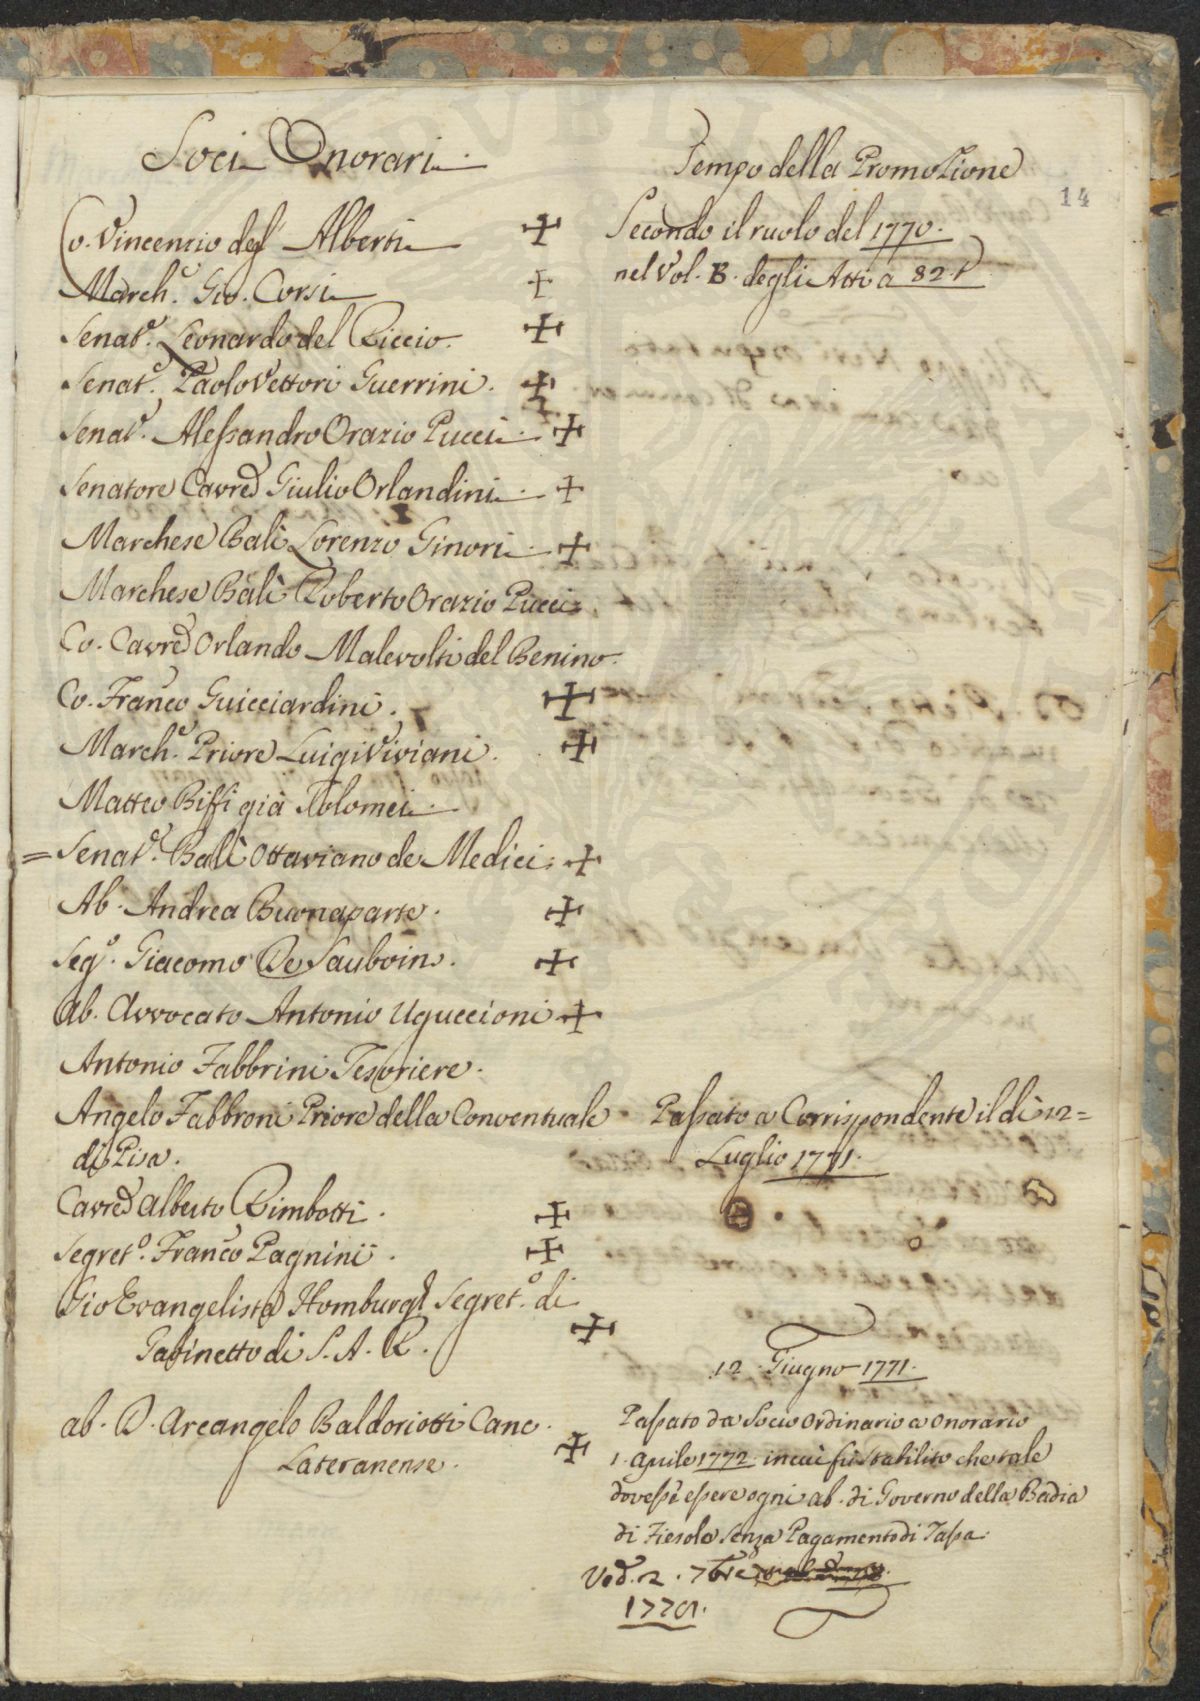 Soci Onorari.
Tempo della Promozione
14
Co. Vincenzio degl' Alberti
Secondo il ruolo del 1770.
nel Vol. B. degli Atti a 82. t
March.e Gio. Corsi
Senat.e Leonardo del Riccio.
Senat.e Paolo Vettori Guerrini.
Senat.e Alessandro Orazio Pucci.
Senatore Cavre Giulio Orlandini.
Marchese Balì Lorenzo Ginori.
Marchese Balì Roberto Orazio Pucci
Co. Cavre Orlando Malevolti del Benino.
Co. Franco Guicciardini.
March.e Priore Luigi Viviani.
Matteo Biffi già Tolomei.
= Senat.e Balì Ottaviano de Medici
Ab. Andrea Buonaparte.
Seg.o Giacomo De Sauboins.
Ab. Avvocato Antonio Uguccioni
Antonio Fabbrini Tesoriere.
Angelo Fabbroni Priore della Conventuale
di Pisa.
Passato a Corrispondente il dì 12=
Luglio 1771.
Cavre Alberto Rimbotti.
Segret.o Franco Pagnini.
Gio Evangelista Homburg Segret.o di
Gabinetto di S. A. R.
12. Giugno 1771.
ab. D. Arcangelo Baldoriotti Canc.
Lateranense.
Passato da Socio Ordinario a Onorario
1. Aprile 1772. in cui fù stabilito che tale
dovesse essere ogni ab. di Governo della Badia
di Fiesole senza Pagamento di Tassa.
Ved. 2. 7bre